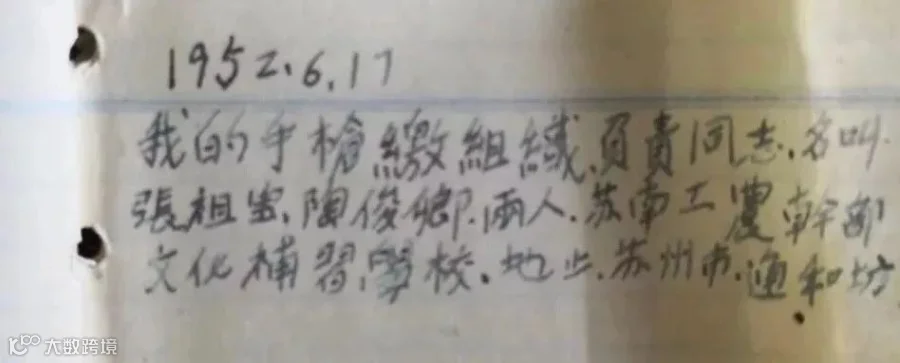 1952.6.17
我的手槍繳組織.負責同志.名叫.
張祖宝.陶俊卿.兩人.苏南工農幹部
文化補習學校.地止.苏州市.通和坊
大数跨境